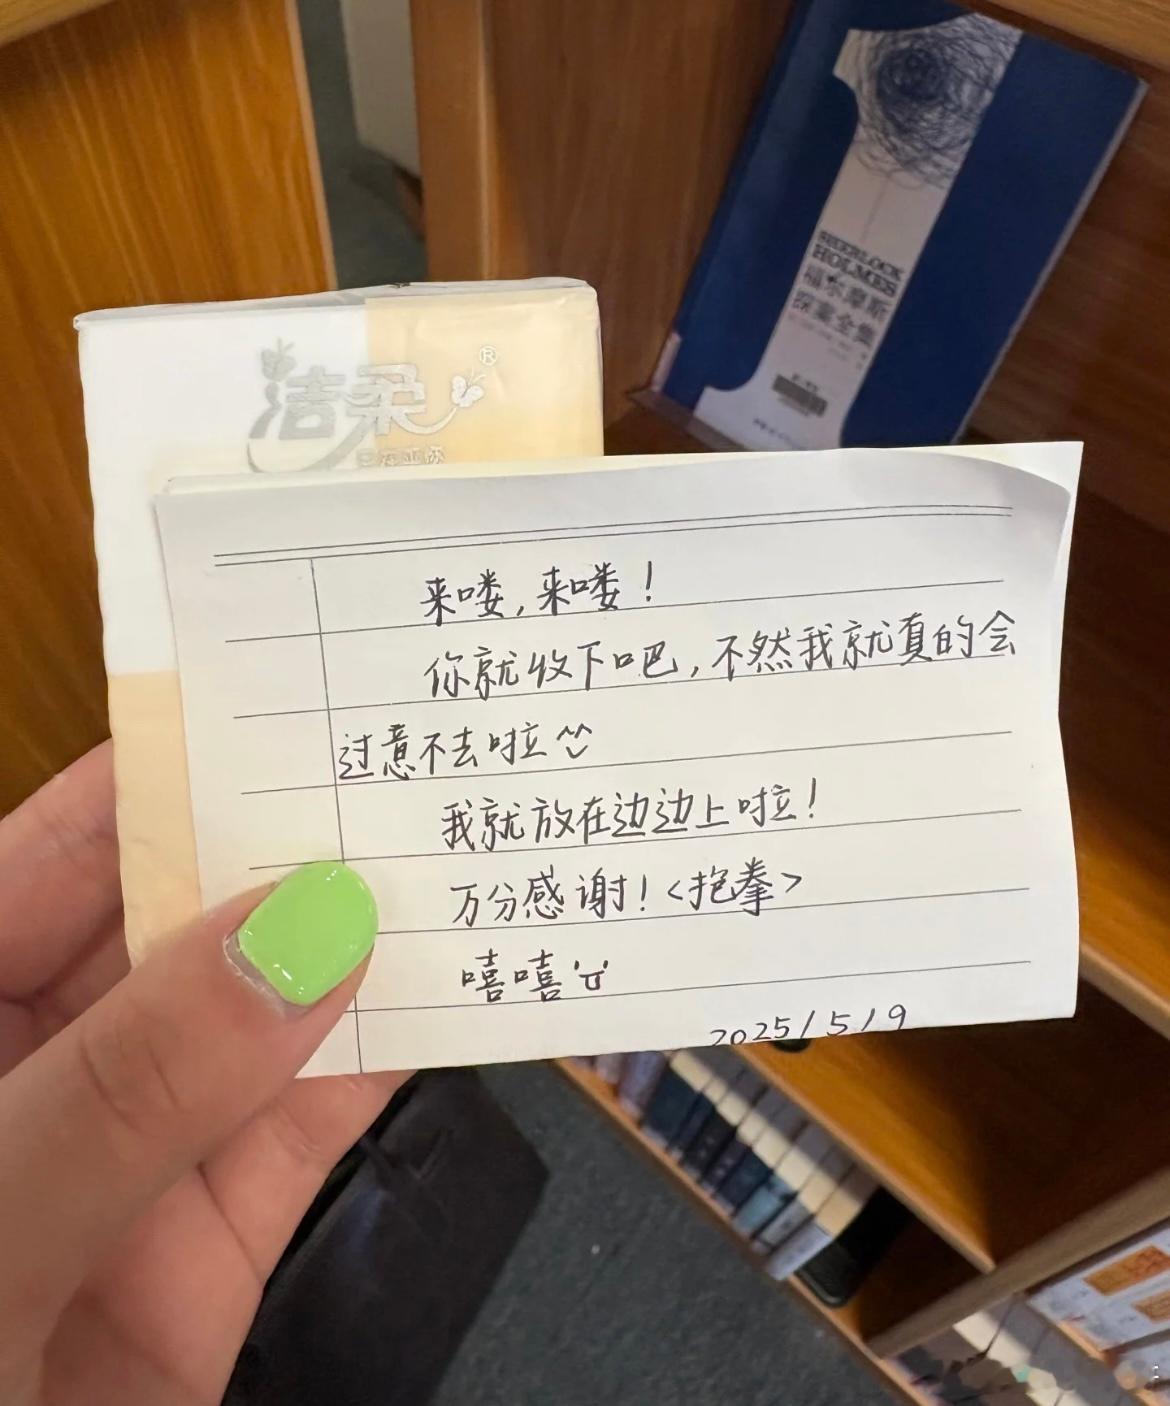 SHERLOCK
HOLMES
福尔摩斯
探案全集
洁柔®
来喽，来喽！
你就收下吧，不然我就真的会
过意不去啦^^
我就放在边边上啦！
万分感谢！<抱拳>
嘻嘻
2025/5/9